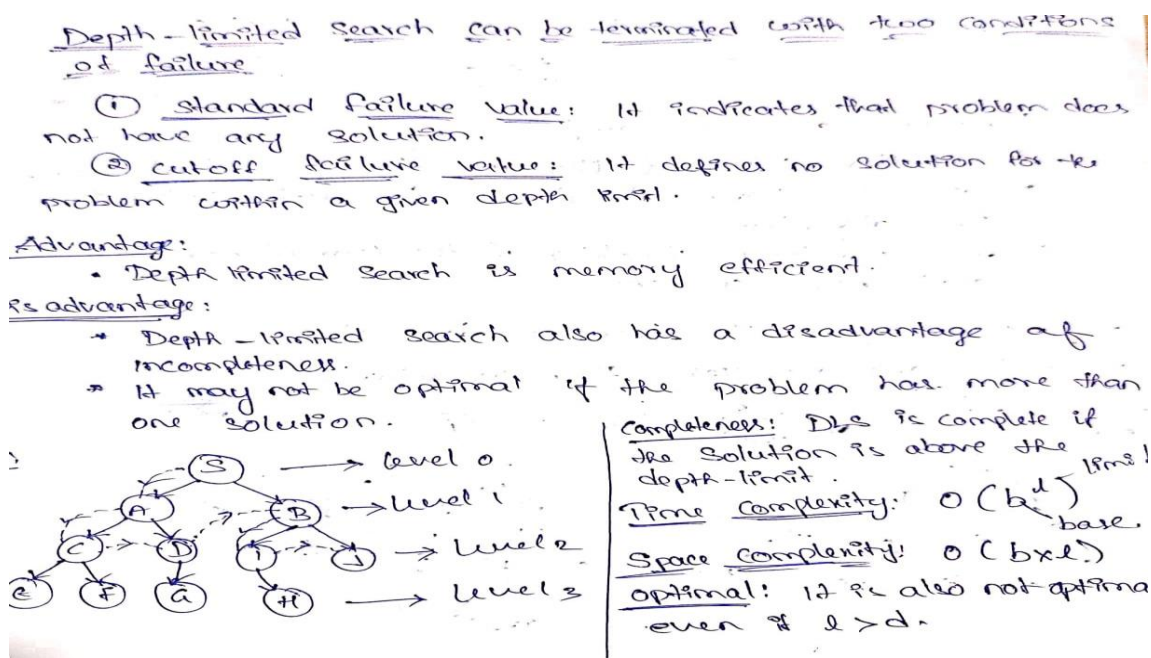 Depth-limited search can be terminated with two conditions
of failure
① standard failure value: It indicates that problem does
not have any solution.
② cutoff failure value: It defines no solution for the
problem within a given depth limit.
Advantage:
• Depth limited search is memory efficient.
isadvantage:
* Depth-limited search also has a disadvantage of
incompleteness.
* It may not be optimal if the problem has more than
one solution.
S → level 0
A B → level 1
C D I J → level 2
E F G H → level 3
Completeness: DLS is complete if
the solution is above the
depth-limit.
limit
Time complexity: O(b^l)
base
Space complexity: O(b×l)
optimal: It is also not optima
even if l>d.